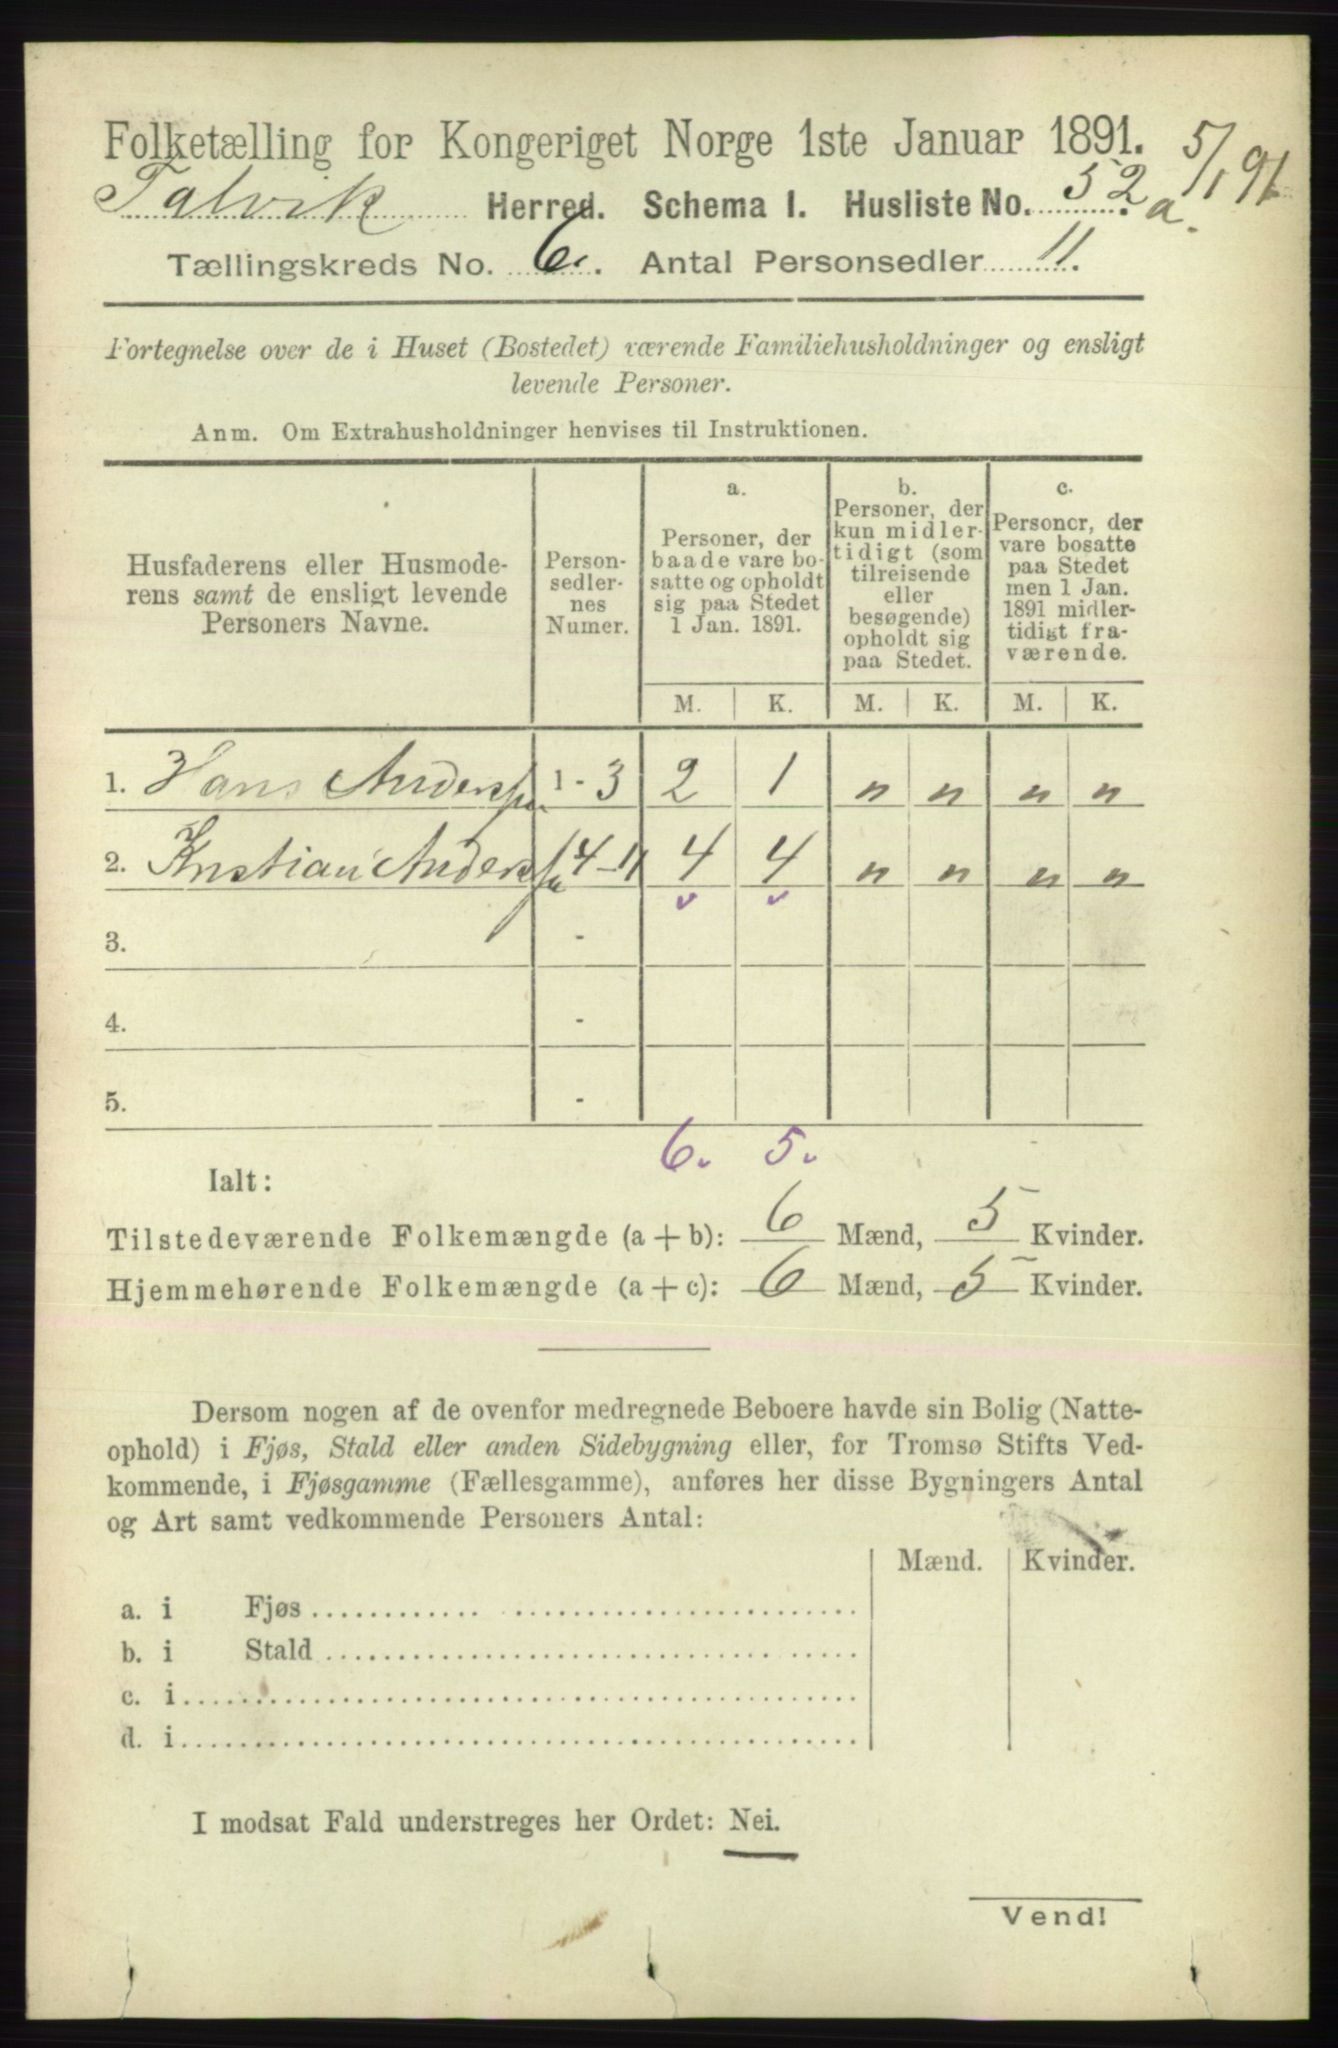 Folketælling for Kongeriget Norge 1ste Januar 1891. 5/1 91
Talvik Herred. Schema I. Husliste No. 52 a.
Tællingskreds No. 6. Antal Personsedler 11.
Fortegnelse over de i Huset (Bostedet) værende Familiehusholdninger og ensligt
levende Personer.
Anm. Om Extrahusholdninger henvises til Instruktionen.
Husfaderens eller Husmode-
rens samt de ensligt levende
Personers Navne.
Person-
sedler-
nes
Numer.
a.
Personer, der
baade vare bo-
satte og opholdt
sig paa Stedet
1 Jan. 1891.
b.
Personer, der
kun midler-
tidigt (som
tilreisende
eller
besøgende)
opholdt sig
paa Stedet.
c.
Personer, der
vare bosatte
paa Stedet
men 1 Jan.
1891 midler-
tidigt fra-
værende.
M. K. M. K. M. K.
1. Hans Anderssen 1 - 3 2 1 „ „ „ „
2. Kristian Anderssen 4 - 11 4 4 „ „ „ „
3. -
4. -
5. -
6. 5.
Ialt:
Tilstedeværende Folkemængde (a + b): 6 Mænd, 5 Kvinder.
Hjemmehørende Folkemængde (a + c): 6 Mænd, 5 Kvinder.
Dersom nogen af de ovenfor medregnede Beboere havde sin Bolig (Natte-
ophold) i Fjøs, Stald eller anden Sidebygning eller, for Tromsø Stifts Ved-
kommende, i Fjøsgamme (Fællesgamme), anføres her disse Bygningers Antal
og Art samt vedkommende Personers Antal:
Mænd. Kvinder.
a. i Fjøs
b. i Stald
c. i
d. i
I modsat Fald understreges her Ordet: Nei.
Vend!